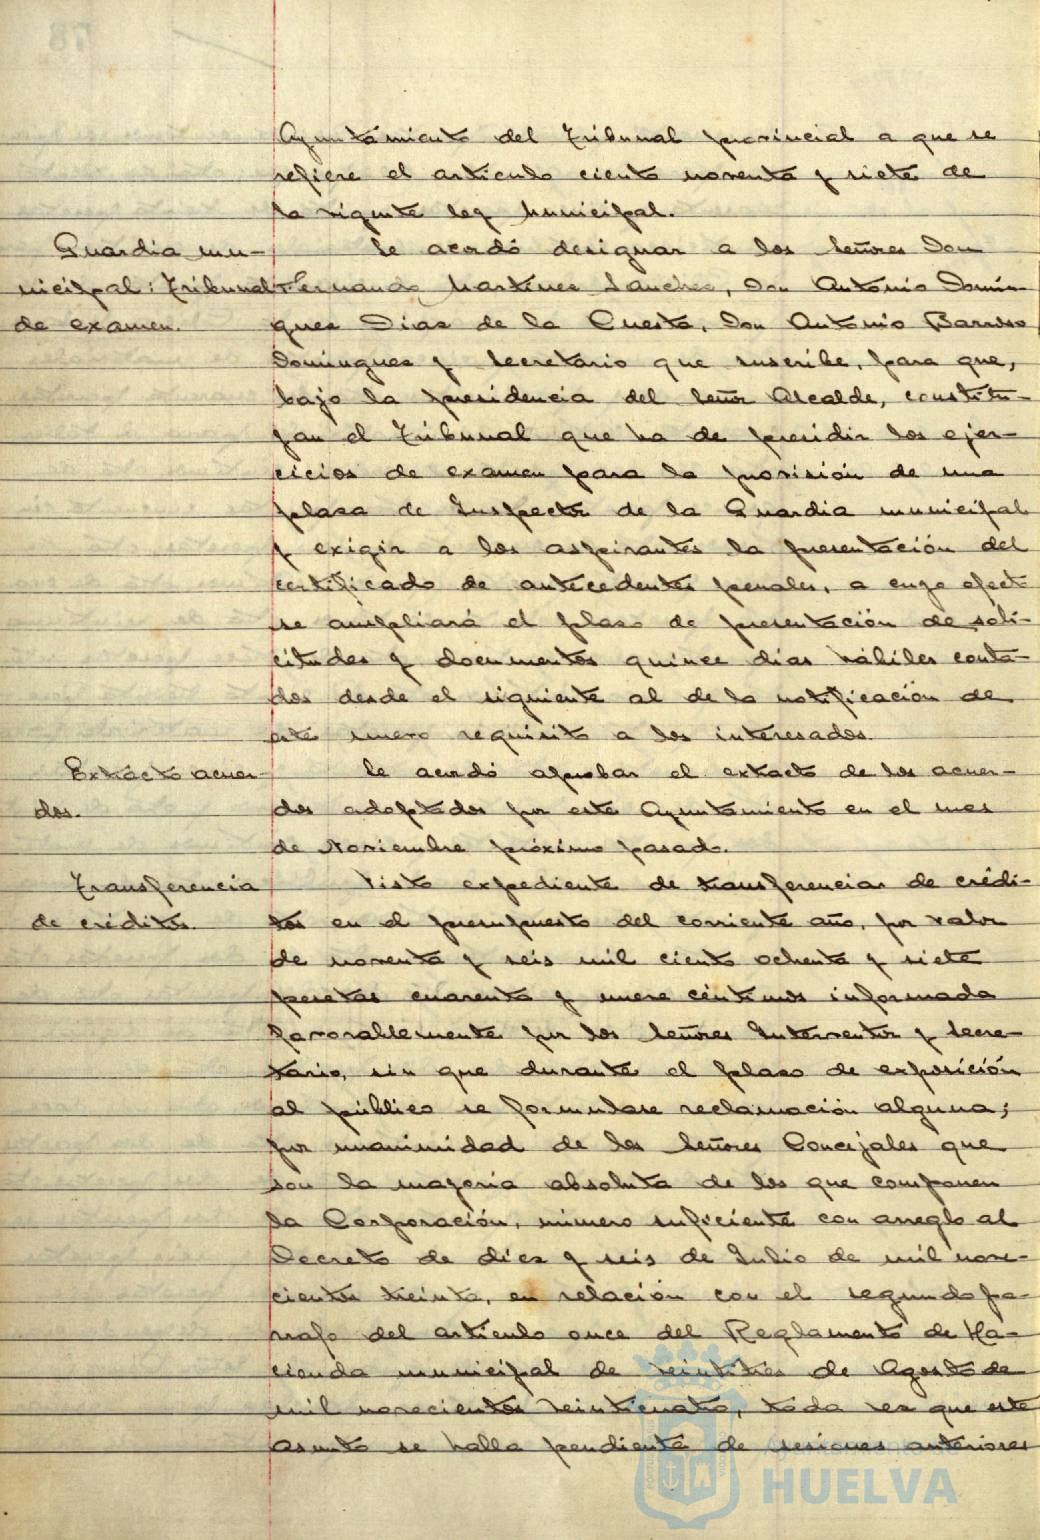 Ayuntamiento del Tribunal provincial a que se
refiere el artículo ciento noventa y siete de
la vigente ley Municipal.
Guardia mu-
nicipal: Tribunal
de examen.
Se acordó designar a los Señores Don
Fernando Martínez Sánchez, Don Antonio Domín-
guez Díaz de la Cuesta, Don Antonio Barroso
Domínguez y Secretario que suscribe, para que,
bajo la presidencia del Señor Alcalde, constitu-
yan el Tribunal que ha de presidir los ejer-
cicios de examen para la provisión de una
plaza de Inspector de la Guardia municipal
y exigir a los aspirantes la presentación del
certificado de antecedentes penales, a cuyo efecto
se ampliará el plazo de presentación de soli-
citudes y documentos quince días hábiles conta-
dos desde el siguiente al de la notificación de
este nuevo requisito a los interesados.
Extracto acuer-
dos.
Se acordó aprobar el extracto de los acuer-
dos adoptados por este Ayuntamiento en el mes
de Noviembre próximo pasado.
Transferencia
de créditos.
Visto expediente de transferencias de crédi-
tos en el presupuesto del corriente año, por valor
de noventa y seis mil ciento ochenta y siete
pesetas cuarenta y nueve céntimos informada
favorablemente por los Señores Interventor y Secre-
tario, sin que durante el plazo de exposición
al público se formulase reclamación alguna;
por unanimidad de los Señores Concejales que
son la mayoría absoluta de los que componen
la Corporación, número suficiente con arreglo al
Decreto de diez y seis de Julio de mil nove-
cientos treinta, en relación con el segundo pá-
rrafo del artículo once del Reglamento de Ha-
cienda municipal de veintitrés de Agosto de
mil novecientos veinticuatro, toda vez que este
asunto se halla pendiente de sesiones anteriores
Ayuntamiento de
HUELVA